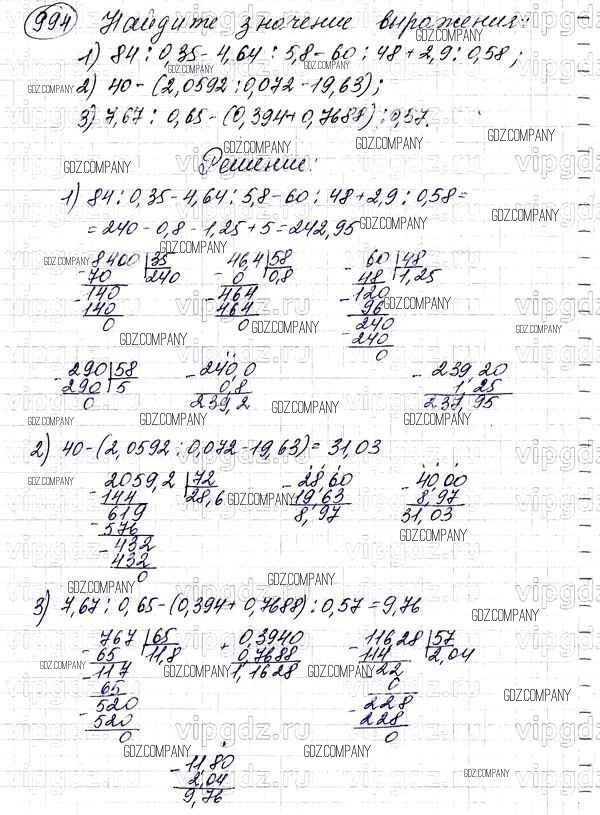 994 Найдите значение выражения:
1) 84 : 0,35 - 4,64 : 5,8 - 60 : 48 + 2,9 : 0,58;
2) 40 - (2,0592 : 0,072 - 19,63);
3) 7,67 : 0,65 - (0,394 + 0,7688) : 0,57.
Решение:
1) 84 : 0,35 - 4,64 : 5,8 - 60 : 48 + 2,9 : 0,58 =
= 240 - 0,8 - 1,25 + 5 = 242,95
8400 | 35 46,4 | 58 60 | 48
- 70 240 - 0 0,8 - 48 1,25
140 464 - 120
- 140 - 464 96
0 0 240
- 240
0
- 290 | 58 - 240,0 - 239,20
290 5 0,8 1,25
0 239,2 237,95
2) 40 - (2,0592 : 0,072 - 19,63) = 31,03
2059,2 | 72 - 28,60 - 40,00
- 144 28,6 19,63 8,97
619 8,97 31,03
- 576
- 432
432
0
3) 7,67 : 0,65 - (0,394 + 0,7688) : 0,57 = 9,76
767 | 65 + 0,3940 - 116,28 | 57
- 65 11,8 0,7688 114 2,04
- 117 1,1628 - 22
65 0
- 520 - 228
520 228
0 0
- 11,80
2,04
9,76
GDZ.COMPANY
vipgdz.ru